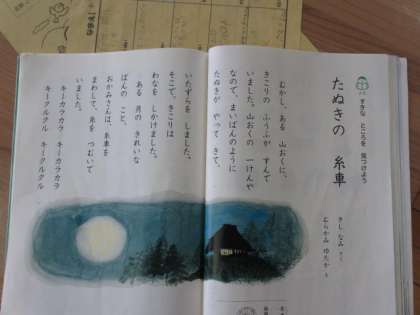 すきな ところを 見つけよう
たぬきの 糸車
きし なみ さく
むらかみ ゆたか え
むかし、ある 山おくに、
きこりの ふうふが すんで
いました。山おくの 一けんや
なので、まいばんのように
たぬきが やって きて、
いたずらを しました。
そこで、きこりは
わなを しかけました。
ある 月の きれいな
ばんの こと、
おかみさんは、糸車を
まわして、糸を つむいで
いました。
キーカラカラ キーカラカラ
キークルクル キークルクル